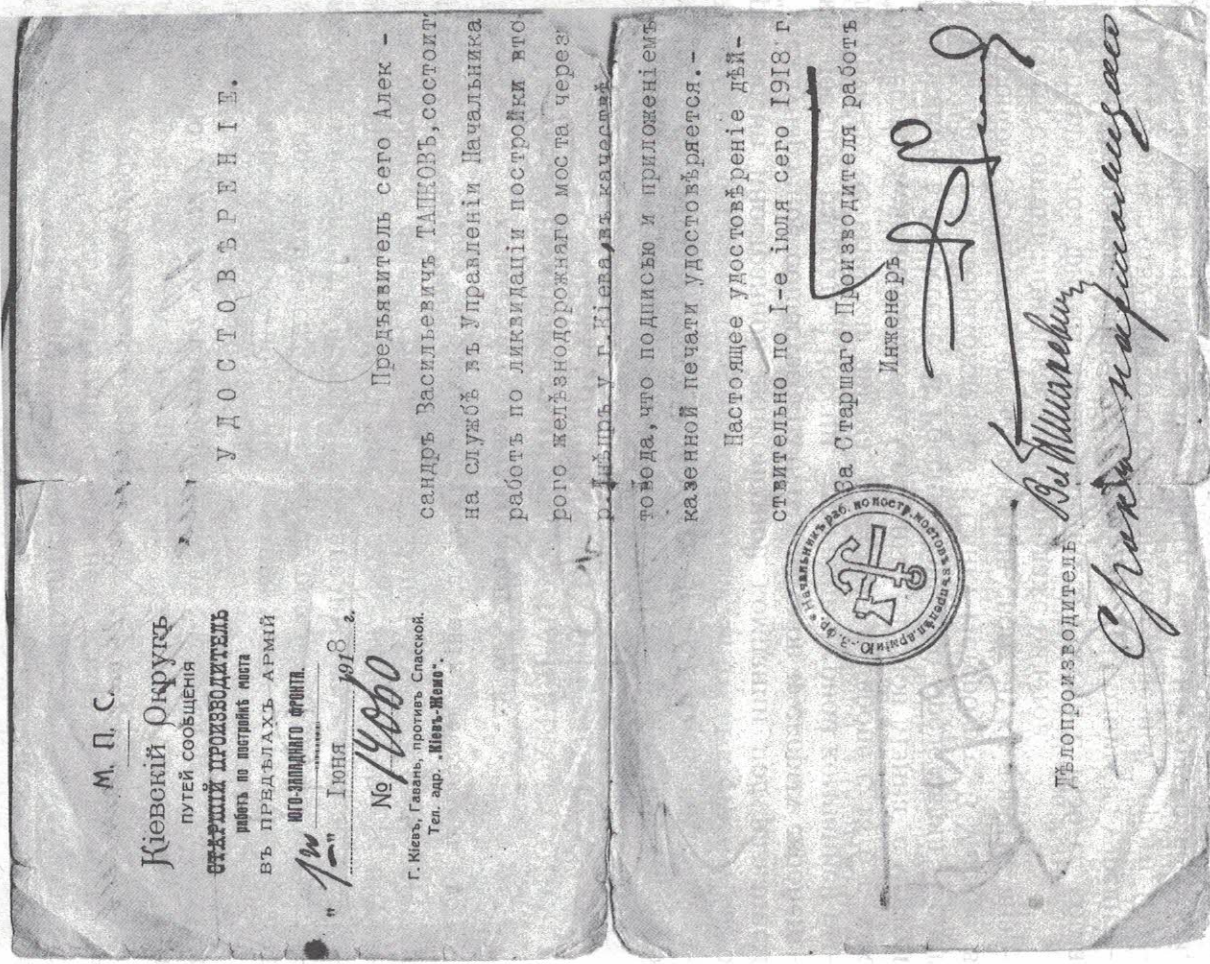 М. П. С.
Кіевскій Округъ
ПУТЕЙ СООБЩЕНІЯ
СТАРШІЙ ПРОИЗВОДИТЕЛЬ
работъ по постройкѣ моста
ВЪ ПРЕДѢЛАХЪ АРМІЙ
ЮГО-ЗАПАДНАГО ФРОНТА.
" 1го " Іюня 1918 г.
№ 14060
Г. Кіевъ, Гавань, противъ Спасской.
Тел. адр. „Кіевъ-Жемо".
УДОСТОВѢРЕНІЕ.
Предъявитель сего Алек-
сандръ Васильевичъ ТАПКОВЪ, состоитъ
на службѣ въ Управленіи Начальника
работъ по ликвидаціи постройки вто-
рого желѣзнодорожнаго моста через
р.Днѣпръ у г.Кіева, въ качествѣ
товода, что подписью и приложеніемъ
казенной печати удостовѣряется.-
Настоящее удостовѣреніе дѣй-
ствительно по I-е іюля сего 1918 г.
За Старшаго Производителя работъ
Инженеръ
Начальникъ раб. по постр. мостовъ въ предѣл. армій Ю.-З. фр.
Дѣлопроизводитель